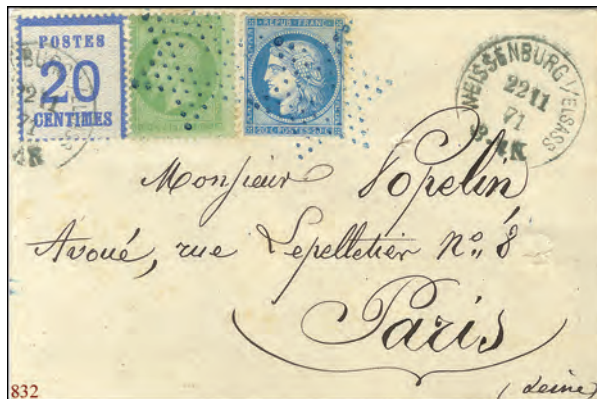 POSTES
20
CENTIMES
REPUB. FRANC.
20 C. POSTES 20 C.
WEISSENBURG I/ELSASS
22 11
71
Monsieur Popelin
Avoué, rue Lepelletier No. 8
Paris
(Seine)
832